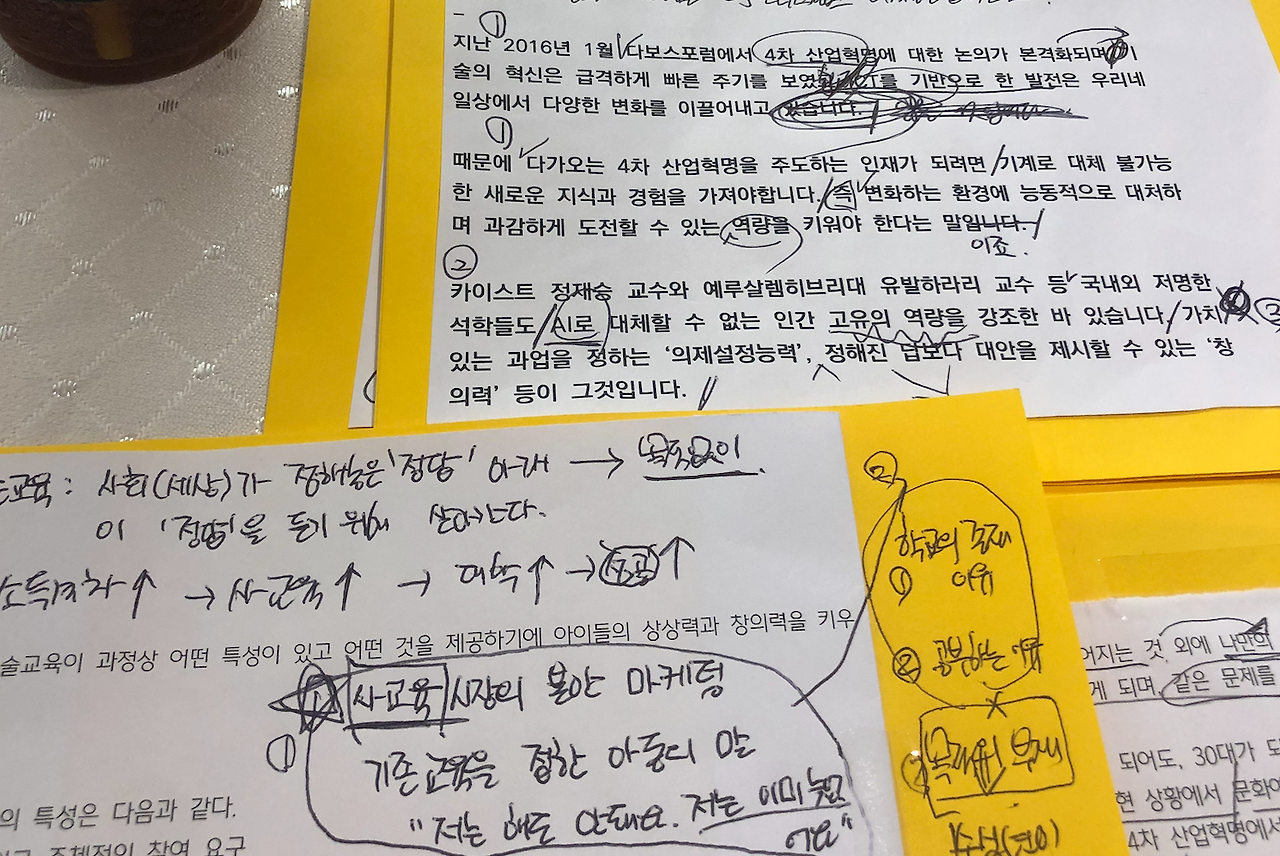 ①
지난 2016년 1월 다보스포럼에서 4차 산업혁명에 대한 논의가 본격화되며
술의 혁신은 급격하게 빠른 주기를 보였 를 기반으로 한 발전은 우리네
일상에서 다양한 변화를 이끌어내고 있습니다.
①
때문에 다가오는 4차 산업혁명을 주도하는 인재가 되려면 기계로 대체 불가능
한 새로운 지식과 경험을 가져야합니다. 즉 변화하는 환경에 능동적으로 대처하
며 과감하게 도전할 수 있는 역량을 키워야 한다는 말입니다.
이죠.
②
카이스트 정재승 교수와 예루살렘히브리대 유발하라리 교수 등 국내외 저명한
석학들도 AI로 대체할 수 없는 인간 고유의 역량을 강조한 바 있습니다. 가치 ③
있는 과업을 정하는 '의제설정능력', 정해진 답보다 대안을 제시할 수 있는 '창
의력' 등이 그것입니다.
교육: 사회(세상)가 정해놓은 '정답' 아래 →
이 '정답'을 듣기 위해 살아간다.
소득격차↑ → 사교육↑ → ↑ → ↑
술교육이 과정상 어떤 특성이 있고 어떤 것을 제공하기에 아이들의 상상력과 창의력을 키우
① 사교육 시장의 불안 마케팅
기존교육을 접한 아동의 말
"저는 해도 안돼요. 저는 이미 늦었
어요"
의 특성은 다음과 같다.
주체적인 참여 요구
②
학교의 존재
① 이유
② 공부하는 이유
부재
어지는 것 외에 나만의
게 되며, 같은 문제를
되어도, 30대가 되
현 상황에서 문화예
4차 산업혁명에서